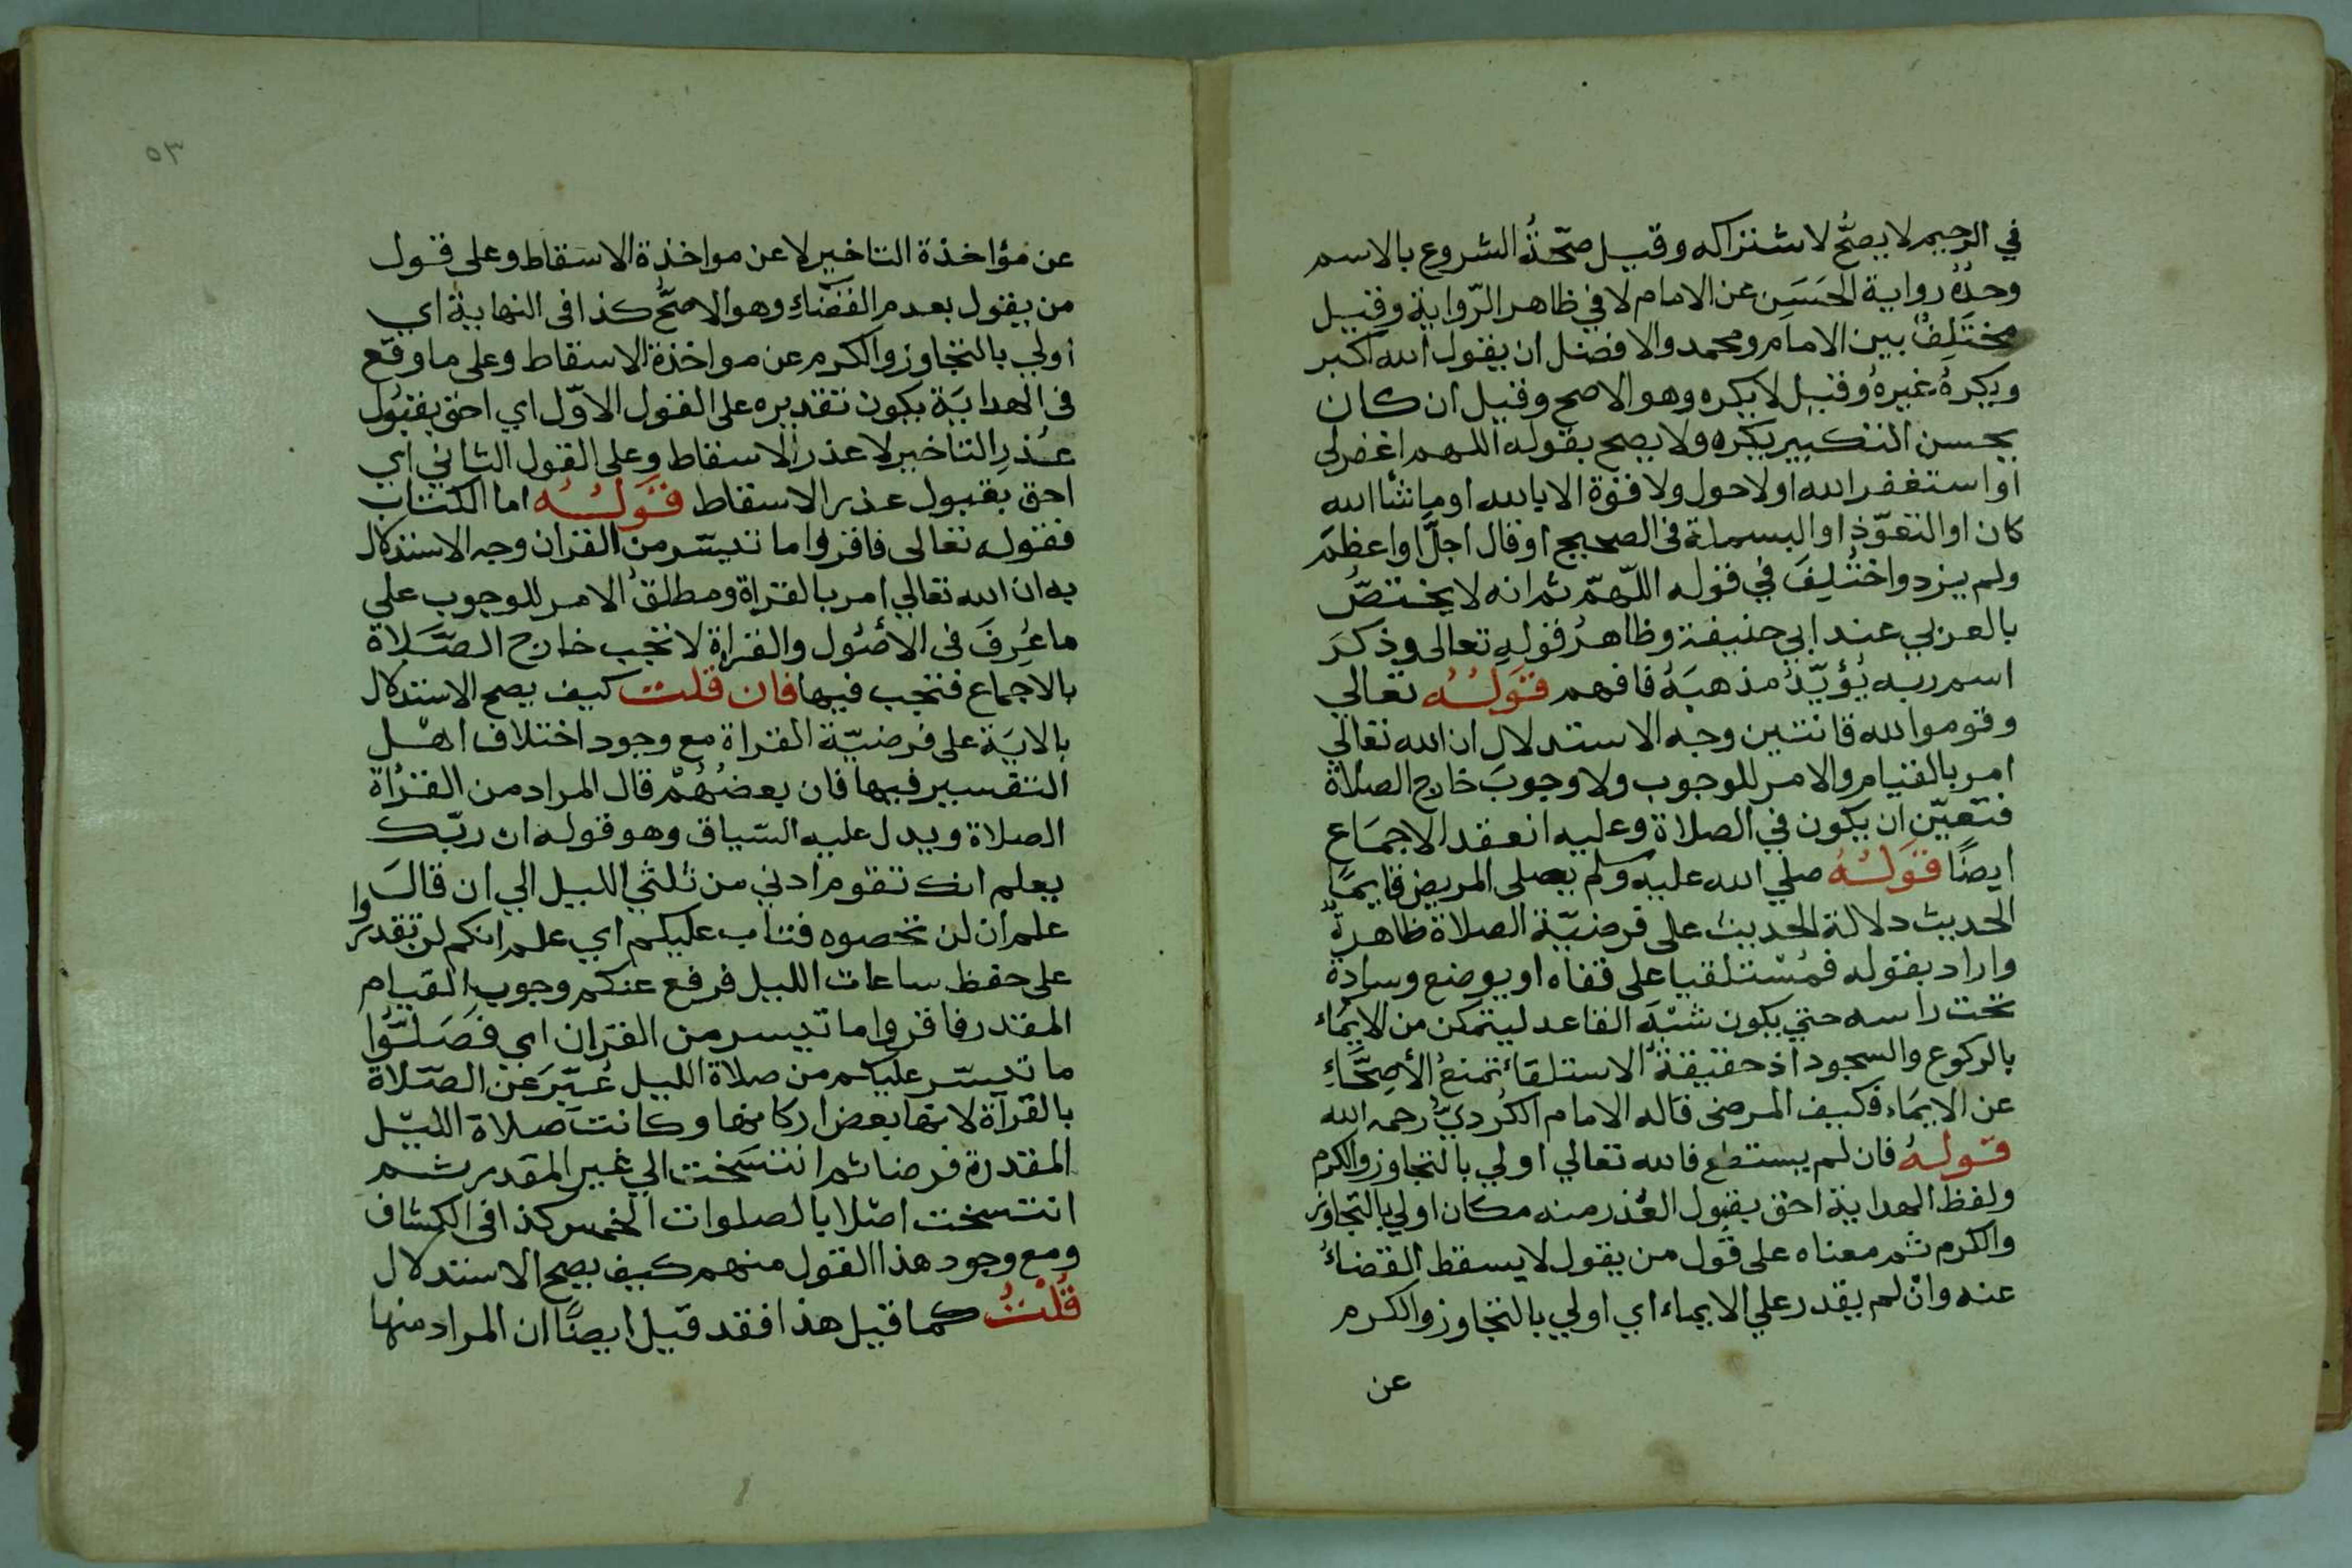 في الرحيم لا يصحُّ لاشتراكه وقيل صحّةُ الشروع بالاسم
وحدُهُ رواية الحَسَنِ عن الامام لا في ظاهر الرّواية وقيل
مختَلِفٌ بين الامام ومحمد والافضل ان يقول الله اكبر
ويكرهُ غيرهُ وقيل لا يكره وهو الاصح وقيل ان كان
يحسن التكبير يكره ولا يصح بقوله اللهم اغفر لي
او استغفر الله او لا حول ولا قوة الا بالله او ما شأ الله
كان او التعوّذ او البسملة في الصحيح او قال اجلّ او اعظم
ولم يزد واختُلِفَ في قوله اللّهمّ ثم انه لا يختصُّ
بالعربي عند ابي حنيفة وظاهرُ قولِهِ تعالى وذكرَ
اسم ربه يُؤيّدُ مذهبَهُ فافهم قَولُهُ تعالي
وقوموا لله قانتين وجه الاستدلال ان الله تعالي
امر بالقيام والامر للوجوب ولا وجوبَ خارج الصلاة
فتعيّن ان يكون في الصلاة وعليه انعقد الاجمَاع
ايضًا قَولُهُ صلي الله عليه وسلم يصلى المريض قايمًا
الحديث دلالة الحديث على فرضيّة الصلاة ظاهرةٌ
واراد بقوله فمُستلقيا على قفاه او يوضع وسادة
تحت راسه حتي يكون شبْهَ القاعد ليتمكن من الايمَاء
بالركوع والسجود اذ حقيقةُ الاستلقاء تمنعُ الأصِحَّاءِ
عن الايمَاء فكيف المرضى قاله الامام الكُرديُّ رحمه الله
قولهُ فان لم يستطع فالله تعالي اولي بالتجاوز والكرم
ولفظ الهداية احق بقبول العُذر منه مكان اولي بالتجاوز
والكرم ثم معناه على قول من يقول لا يسقط القضاءُ
عنه وانْ لم يقدر علي الايماء اي اولي بالتجاوز والكرم
عن
٥٣
عن مؤاخذة التاخير لا عن مواخذة الاسقاط وعلى قول
من يقول بعدم القضاءِ وهو الاصحُّ كذا في النهاية اي
اولي بالتجاوز والكرم عن مواخذة الاسقاط وعلى ما وقع
في الهدايَة يكون تقديره على القول الاوّل اي احق بقبُول
عُذرِ التاخير لا عذر الاسقاط وعلى القول الثاني اي
احق بقبول عذر الاسقاط قَولُهُ اما الكتاب
فقوله تعالى فاقروا ما تيسّر من القران وجه الاستدلال
به ان الله تعالي امر بالقراة ومطلقُ الامر للوجوب علي
ما عُرِفَ في الأصُول والقراة لا تجب خارج الصَّلاة
بالاجماع فتجب فيها فان قلت كيف يصح الاستدلال
بالايَة على فرضيّة القراة مع وجود اختلاف اهْل
التفسير فيها فان بعضُهُمْ قال المراد من القرْاة
الصلاة ويدل عليه السّياق وهو قوله ان ربّك
يعلم انك تقوم ادني من ثلثي الليل الي ان قالَوا
علم ان لن تحصوه فتاب عليكم اي علم انكم لن تقدروا
على حفظ ساعات الليل فرفع عنكم وجوب القيام
المقدر فاقروا ما تيسر من القران اي فَصَلُّوا
ما تيسّر عليكم من صلاة الليل عُبّرَ عن الصّلاة
بالقرآة لانها بعض اركانها وكانت صلاة الليل
المقدرة فرضا ثم انتسَخت الي غير المقدر ثم
انتسخت اصْلا بالصلوات الخمس كذا في الكشاف
ومع وجود هذا القول منهم كيف يصح الاستدلال
قُلْتُ كما قيل هذا فقد قيل ايضًا ان المراد منها